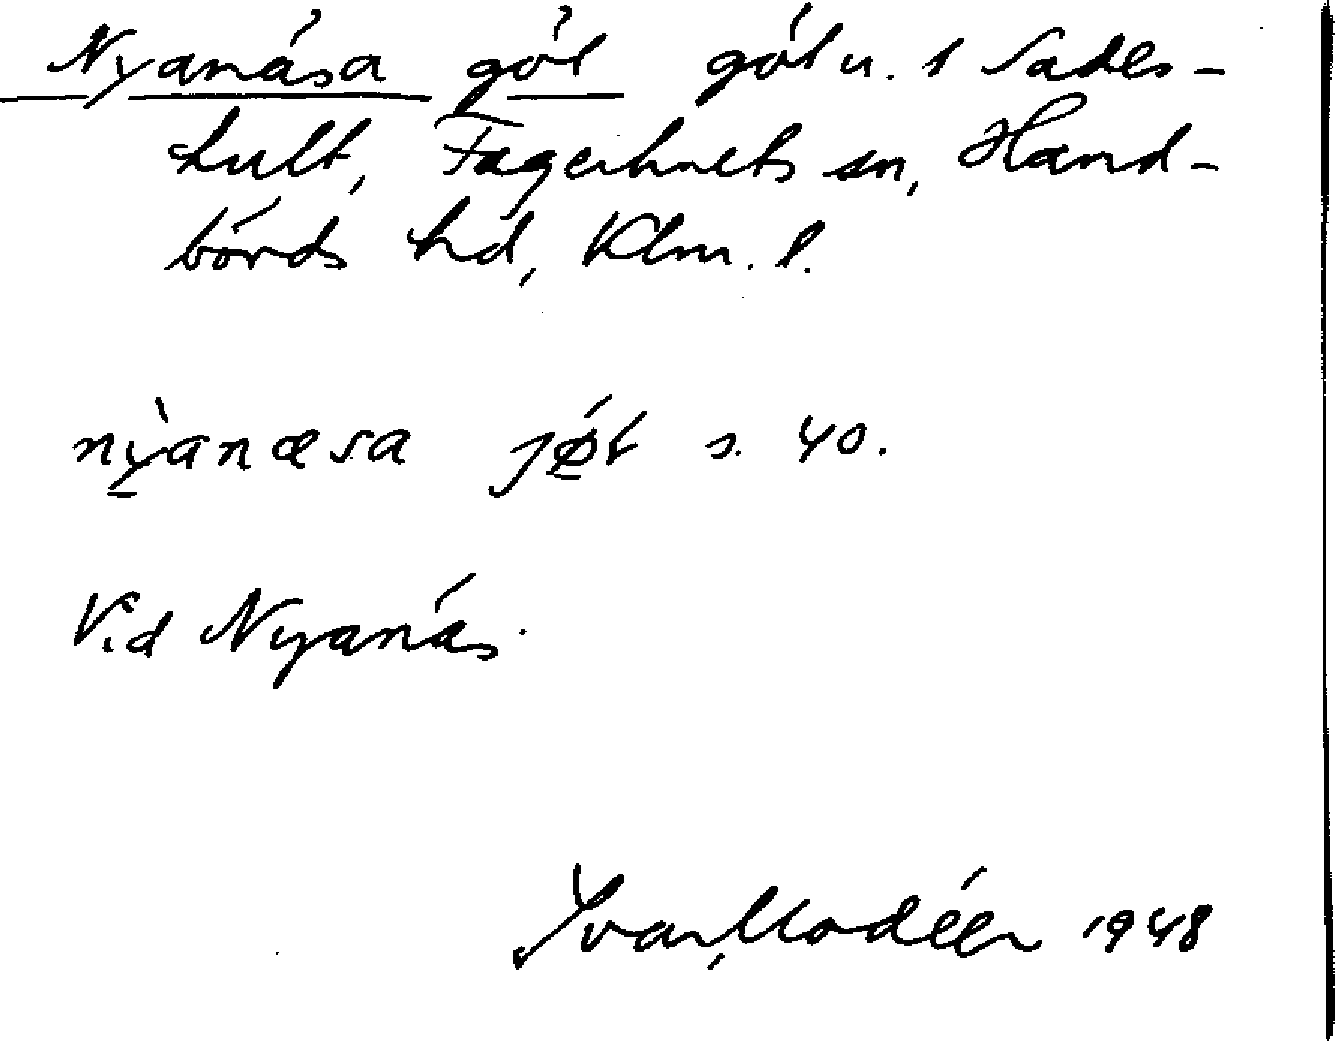 Nyanåsa göl göl u. t Sades-
hult, Fagerhults sn, Hand-
börds hd, Klm. l.
nỳanæsa jǿl s. 40.
Vid Nyanås.
Ivar Modéer 1948